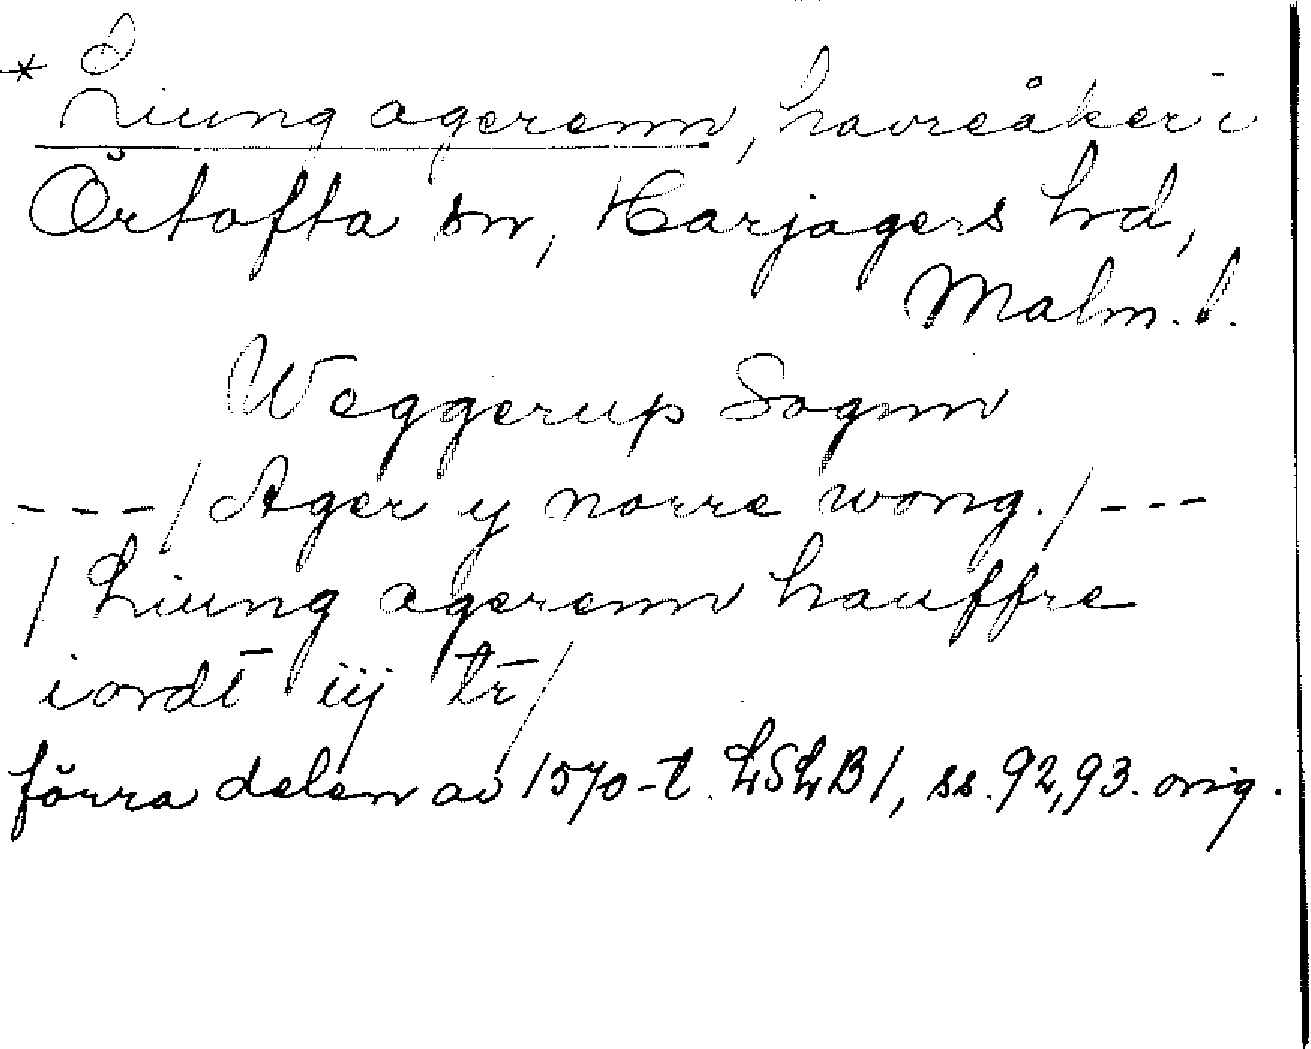 * Liung agerenn, havreåker i
Örtofta sn, Harjagers hd,
Malm. l.
Weggerup Sognn
---/ Ager y norre wong. / ---
/ Liung agerenn hauffre
iordt iij tr̄ /
förra delen av 1570-t. LSLB 1, ss. 92, 93. orig.